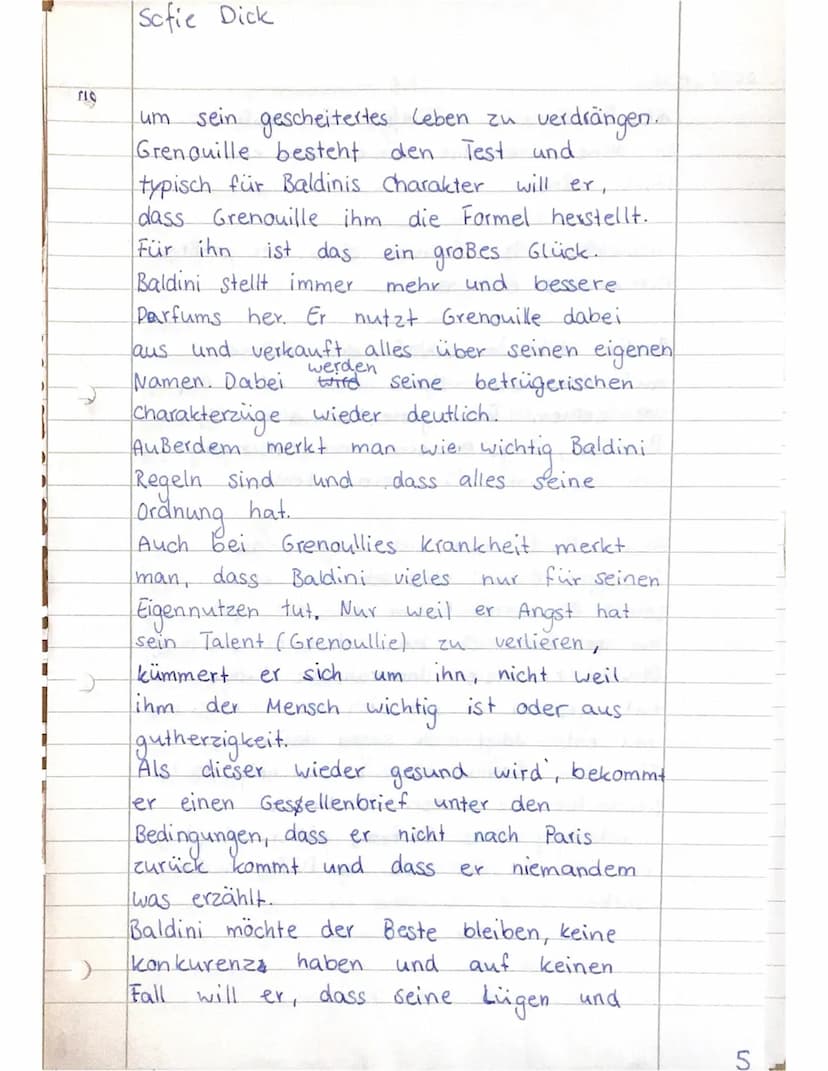 Sofie Dick
um sein gescheitertes Leben zu verdrängen.
Grenouille besteht den Test und
typisch für Baldinis Charakter will er,
dass Grenouille ihm die Formel herstellt.
Für ihn ist das ein großes Glück.
Baldini stellt immer mehr und bessere
Parfums her. Er nutzt Grenouille dabei
aus und verkauft alles über seinen eigenen
werden
Namen. Dabei wird seine betrügerischen
Charakterzüge wieder deutlich.
Außerdem merkt man wie wichtig Baldini
Regeln sind und dass alles seine
Ordnung hat.
Auch bei Grenoullies Krankheit merkt
man, dass Baldini vieles nur für seinen
Eigennutzen tut. Nur weil er Angst hat
sein Talent (Grenoullie) zu verlieren,
kümmert er sich um ihn, nicht weil
ihm der Mensch wichtig ist oder aus
gutherzigkeit.
Als dieser wieder gesund wird, bekommt
er einen Gesellenbrief unter den
Bedingungen, dass er nicht nach Paris
zurück kommt und dass er niemandem
was erzählt.
Baldini möchte der Beste bleiben, keine
Konkurenz haben und auf keinen
Fall will er, dass seine Lügen und
5